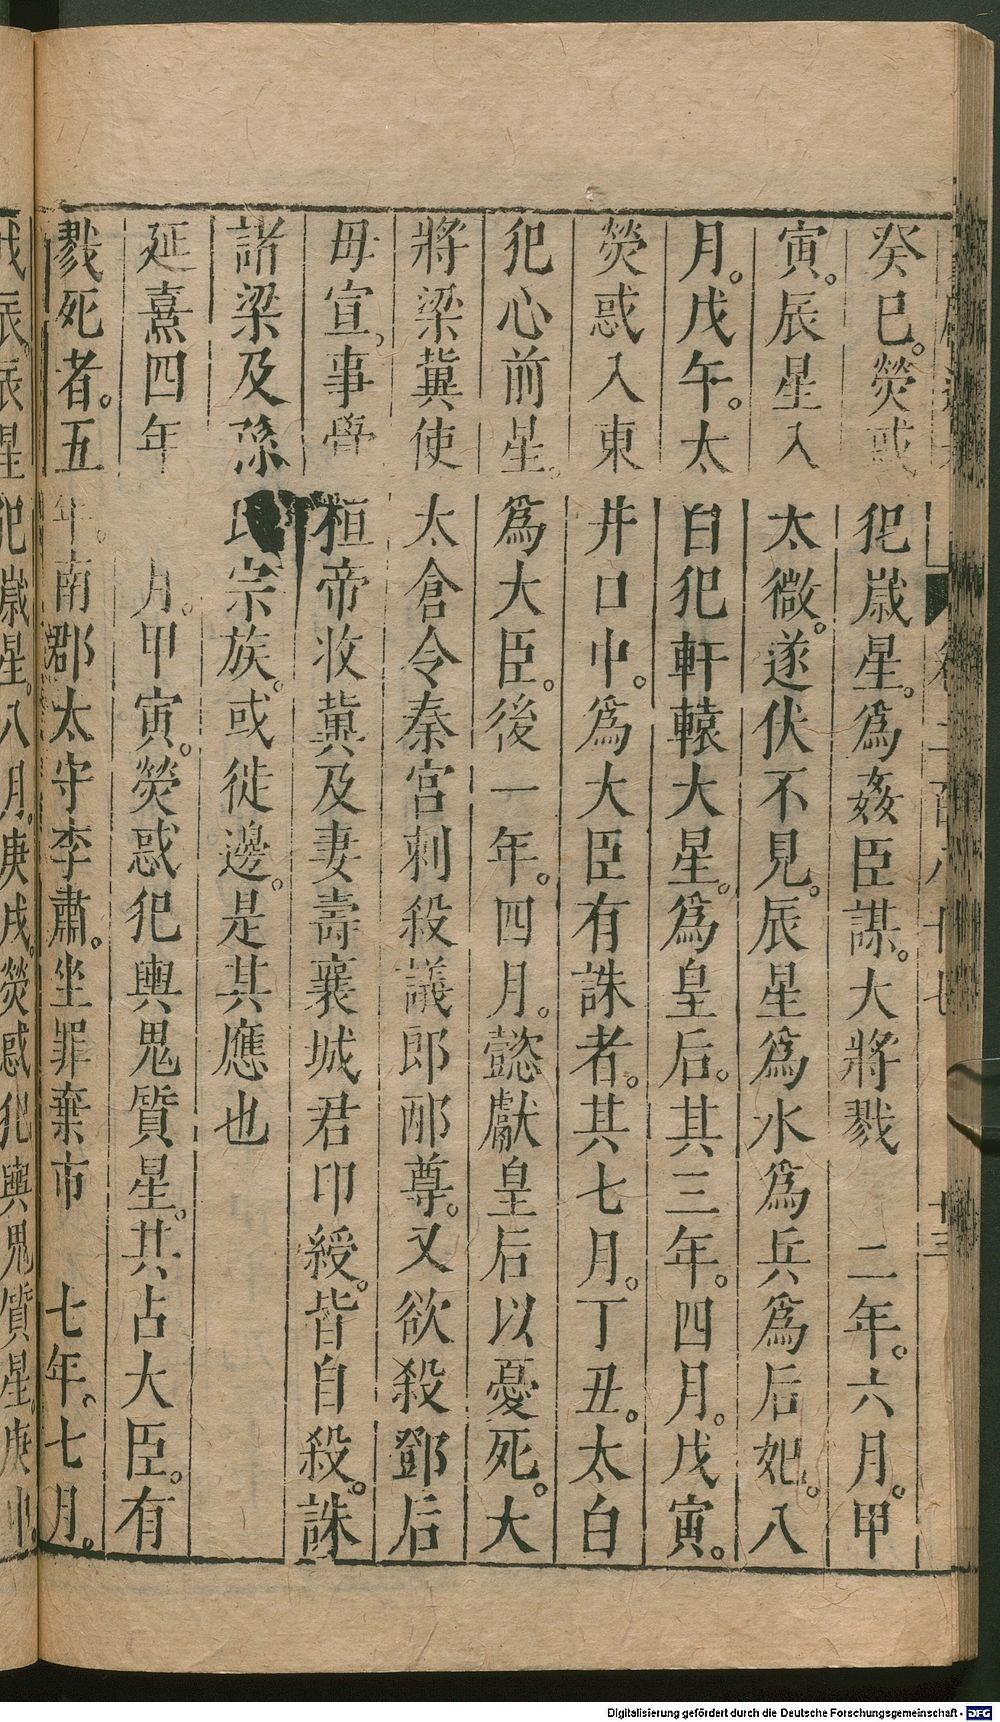 癸巳。熒惑犯歳星。爲姦臣謀。大將戮　二年。六月。甲
寅。辰星入太微。遂伏不見。辰星爲水爲兵爲后妃。八
月。戊午。太白犯軒轅大星。爲皇后。其三年。四月。戊寅。
熒惑入東井口中。爲大臣有誅者。其七月。丁丑。太白
犯心前星。爲大臣。後一年。四月。懿獻皇后以憂死。大
將梁冀使太倉令秦宮刺殺議郎邴尊。又欲殺鄧后
母宣。事覺桓帝收冀及妻壽襄城君印綬。皆自殺。誅
諸梁及孫氏宗族。或徙邊。是其應也
延熹四年　月。甲寅。熒惑犯輿鬼質星。其占大臣。有
戮死者。五年。南郡太守李肅。坐罪棄市　七年。七月。
戊辰。辰星犯歳星。八月。庚戌。熒惑犯輿鬼質星。庚申。
Digitalisierung gefördert durch die Deutsche Forschungsgemeinschaft - DFG